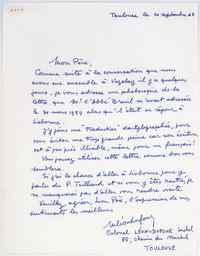 Toulouse le 20 septembre 68
Mon Père,
Comme suite à la conversation que nous
avons eue ensemble à Vézelay il y a quelques
jours, je vous adresse une photocopie de la
lettre que Mr l'Abbé Breuil m'avait adressée
le 30 mars 1959 alors qu'il était en séjour à
Lisbonne.
J'y joins une traduction dactylographiée, pour
vous éviter une trop grande peine car son écriture
est à peu près illisible, même pour un français!
Vous pouvez utiliser cette lettre comme bon vous
semblera.
Si j'ai la chance d'aller à Lisbonne pour y
parler du P. Teilhard et si vous y êtes rentré, je
ne manquerai pas d'aller vous rendre visite.
Veuillez agréer, mon Père, l'expression de mes
sentiments les meilleurs
Colonel
chemin du
TOULOUSE